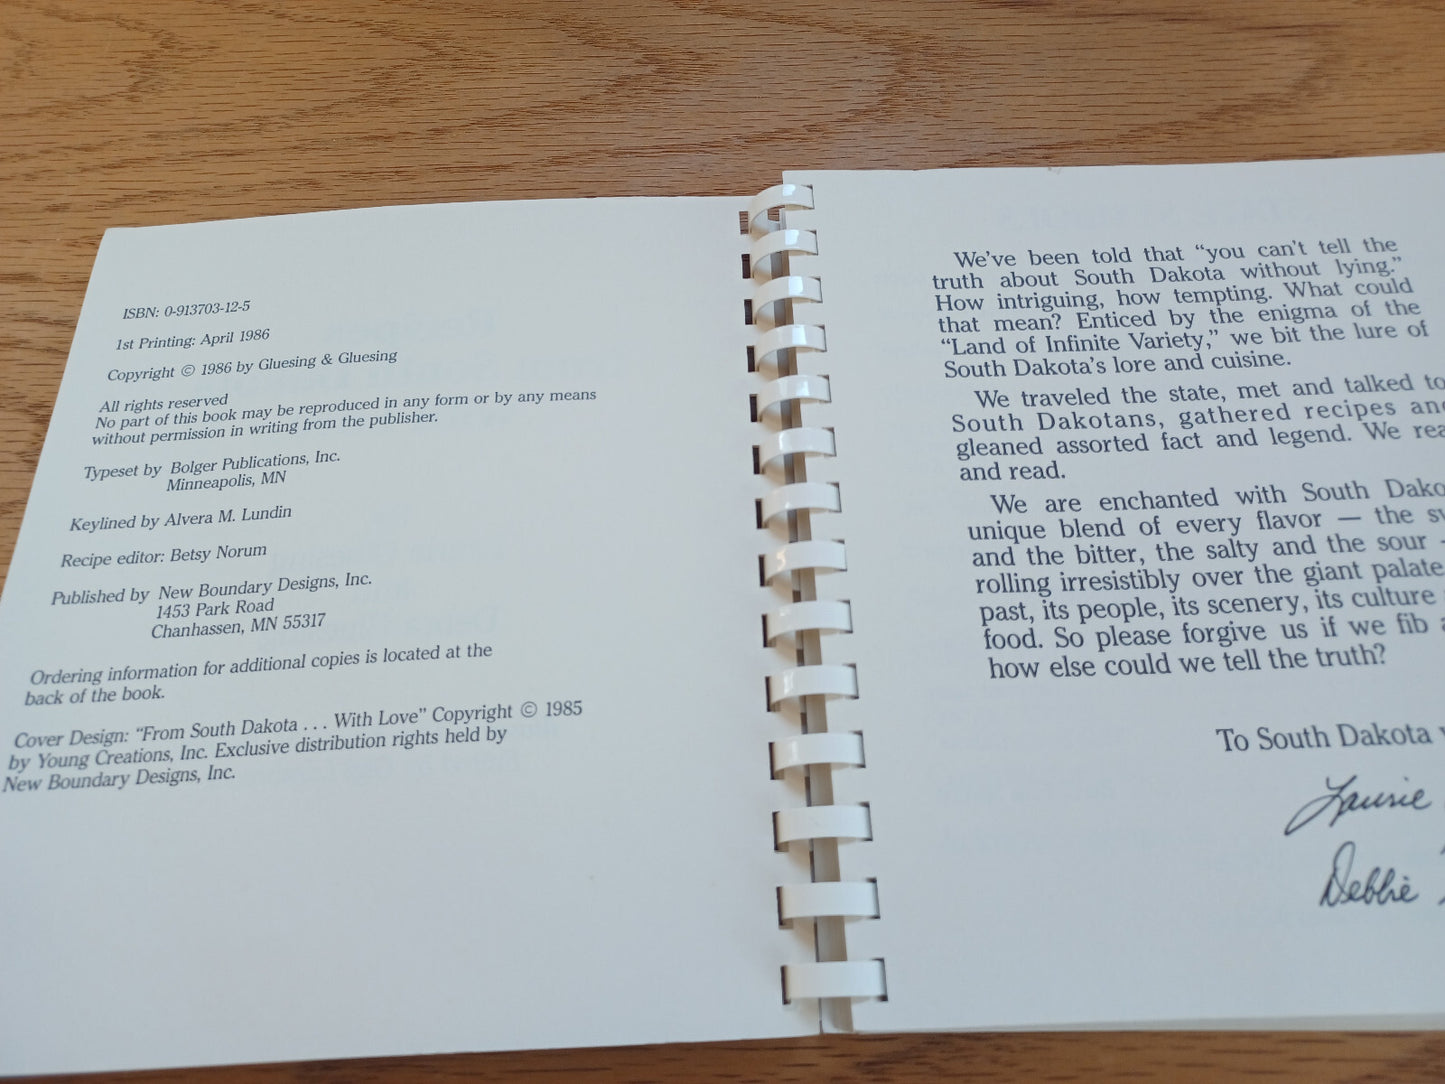 ISBN: 0-913703-12-5
1st Printing: April 1986
Copyright © 1986 by Gluesing & Gluesing
All rights reserved
No part of this book may be reproduced in any form or by any means
without permission in writing from the publisher.
Typeset by Bolger Publications, Inc.
Minneapolis, MN
Keylined by Alvera M. Lundin
Recipe editor: Betsy Norum
Published by New Boundary Designs, Inc.
1453 Park Road
Chanhassen, MN 55317
Ordering information for additional copies is located at the
back of the book.
Cover Design: "From South Dakota . . . With Love" Copyright © 1985
by Young Creations, Inc. Exclusive distribution rights held by
New Boundary Designs, Inc.
We've been told that "you can't tell the
truth about South Dakota without lying."
How intriguing, how tempting. What could
that mean? Enticed by the enigma of the
"Land of Infinite Variety," we bit the lure of
South Dakota's lore and cuisine.
We traveled the state, met and talked to
South Dakotans, gathered recipes and
gleaned assorted fact and legend. We
and read.
We are enchanted with South
unique blend of every flavor — the
and the bitter, the salty and the sour
rolling irresistibly over the giant palate
past, its people, its scenery, its culture
food. So please forgive us if we fib
how else could we tell the truth?
To South Dakota
Laurie
Debbie